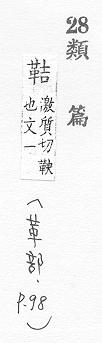 28類篇
鞊
激質切鞕
也文一
（革部．P.98）